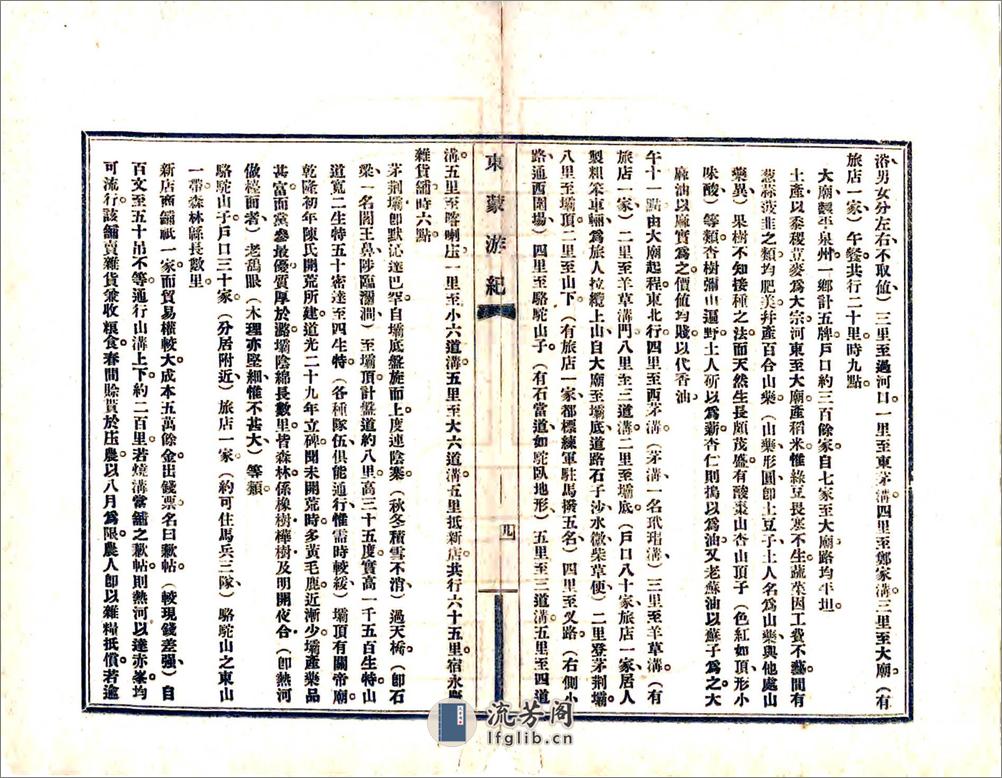 浴男女分左右不取値)三里至過河口一里至東茅溝四里至鄭家溝三里至大廟(有
旅店一家)午餐共行二十里時九點
大廟製平泉州一鄉計五牌戶口約三百餘家自七家至大廟路均平坦
土產以黍稷荳麥爲大宗河東至大廟產稻米惟綠豆畏寒不生蔬菜因工費不藝間有
葱蒜菠韭之類均肥美幷產百合山藥(山藥形圓卽土豆子土人名爲山藥與他處山
藥異)果樹不知接種之法而天然生長頗茂盛有酸棗山杏山頂子(色紅如頂形小
味酸)等類杏樹彌山遍野土人斫以爲薪杏仁則搗以爲油又老蘇油以蘇子爲之大
麻油以麻實爲之價値均賤以代香油
午十一點由大廟起程東北行四里至西茅溝(茅溝一名玳瑁溝)三里至羊草溝(有
旅店一家)二里至羊草溝門八里至三道溝二里至壩底(戶口八十家旅店一家居人
製粗笨車輛爲旅人拉纜上山自大廟至壩底道路石子沙水徵柴草便)二里登茅荆壩
八里至壩頂二里至山下(有旅店一家都標練軍駐馬撥五名)四里至叉路(右側小
路通西圍場)四里至駱駝山子(有石當道如駝臥地形)五里至三道溝五里至四道
東蒙游紀
九
溝五里至喀喇庄一里至小六道溝五里至大六道溝五里抵新店共行六十五里宿永興
雜貨舖時六點
茅荆壩卽默沁達巴罕自壩底盤旋而上度連陰寨(秋冬積雪不消)過天橋(卽石
梁一名閻王鼻)陟臨瀾澗)至壩頂計盤道約八里高三十五度實高一千五百生特山
道寬二生特五十密達至四生特(各種隊伍俱能通行惟需時較緩)壩頂有關帝廟
乾隆初年陳氏開荒所建道光二十九年立碑聞未開荒時多黃毛鹿近漸少壩產藥品
甚富而黨參最優質厚於潞壩陰綿長數里皆森林係橡樹樺樹及明開夜合(卽熱河
做檯面者)老鴰眼(木理亦堅細惟不甚大)等類
駱駝山子戶口三十家(分居附近)旅店一家(約可住馬兵三隊)駱駝山之東山
一帶森林縣長數里
新店商舖祇一家而貿易權較大成本五萬餘金出錢票名曰歉帖(較現錢差强)自
百文至五十吊不等通行山溝上下約二百里若燒溝當舖之歉帖則熱河以達赤峯均
可流行該舖賣雜貨兼收糧食春間賒貰於庄農以八月爲限農人卽以雜糧抵償若逾
流芳阁
lfglib.cn